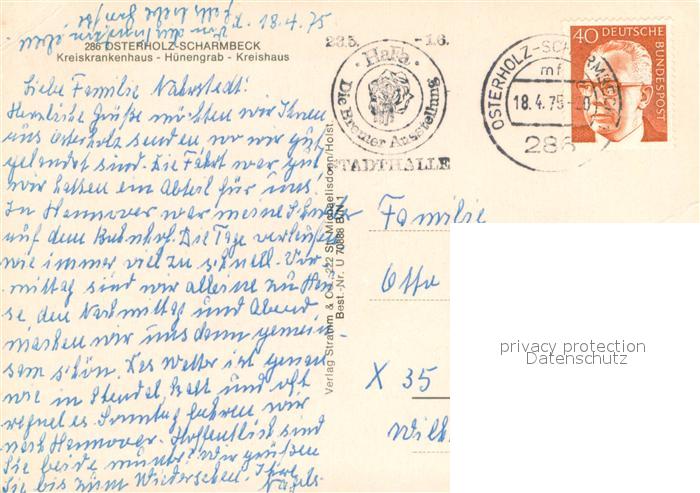 d. 18.4.75
286 OSTERHOLZ-SCHARMBECK
Kreiskrankenhaus - Hünengrab - Kreishaus
Liebe Familie Nahrstedt!
Herzliche Grüße möchten wir Ihnen
aus Osterholz senden wo wir gut
gelandet sind. Die Fahrt war gut
wir hatten ein Abteil für uns.
In Hannover war meine Schwester
auf dem Bahnhof. Die Tage verlaufen
wie immer viel zu schnell. Vor-
mittag sind wir alleine zu Hau-
se den Nachmittag und Abend
machen wir uns dann gemein-
sam schön. Das Wetter ist genau
wie in Stendal, kalt und oft
regnet es. Sonntag fahren wir
nach Hannover. Hoffentlich sind
Sie beide munter? Wir grüßen
Sie bis zum Wiedersehen. Ihre
Verlag Stramm & Co., 222 St. Michaelisdonn/Holst.
Best.-Nr. U 70888 B/N 1
23.5. - 1.6.
HaFa
Die Bremer Ausstellung
STADTHALLE
OSTERHOLZ-SCHARMBECK
mf
18.4.75-20
286
40 DEUTSCHE
BUNDESPOST
Familie
Otto
X 35
Wilh
privacy protection
Datenschutz